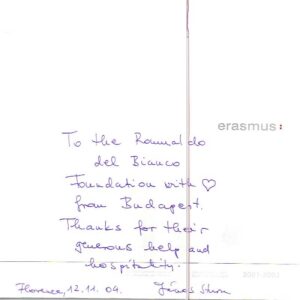 erasmus:
To the Romualdo
del Bianco
Foundation with ♡
from Budapest.
Thanks for their
generous help and
hospitality.
Florence, 12. 11. 04. János